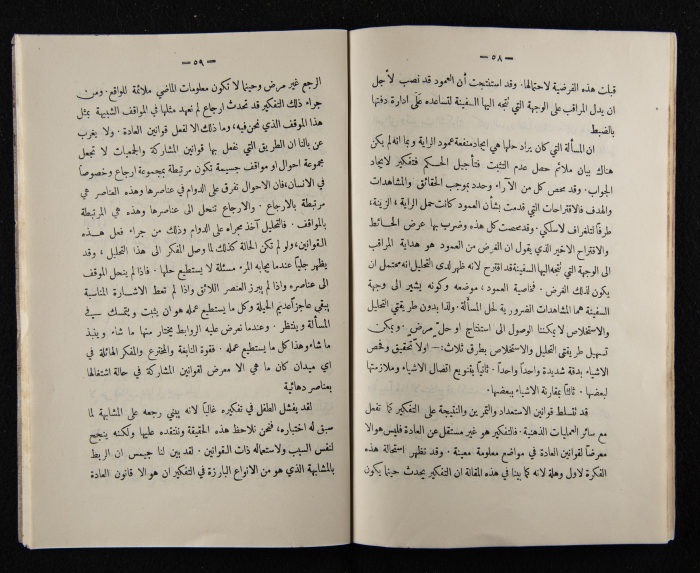 — ٥٨ —
قبلت هذه الفرضية لاحتمالها. وقد استنتجت أن العمود قد نصب لاجل
ان يدل المراقب على الوجهة التي تتجه اليها السفينة لتساعده على ادارة دفتها
بالضبط
ان المسألة التي كان يراد حلها هي ايجاد منفعة عمود الراية وبما انه لم يكن
هناك بيان ملائم حصل عدم التثبت. فتأجيل الحكم فتفكير لايجاد
الجواب. وقد محص كل من الآراء وحدد بموجب الحقائق والمشاهدات
والهدف فالاقتراحات التي قدمت بشأن العمود كانت حمل الراية، الزينة،
طرفاً لتلغراف لاسلكي. وقد محصت كل هذه وضرب بها عرض الحائط
والاقتراح الاخير الذي يقول ان الغرض من العمود هو هداية المراقب
الى الوجهة التي تتجه اليها السفينة قد اقترح لانه ظهر لدى التحليل انه محتمل ان
يكون لذلك الغرض. فخاصية العمود، موضعه وكونه يشير الى وجهة
السفينة هما المشاهدات الضرورية لحل المسألة. ولذا بدون طريقتي التحليل
والاستخلاص لا يمكننا الوصول الى استنتاج او حل مرض. ويمكن
تسهيل طريقتي التحليل والاستخلاص بطرق ثلاث:— اولاً تحقيق وفحص
الاشياء بدقة شديدة واحداً واحداً. ثانياً بتنويع اتصال الاشياء وملازمتها
لبعضها. ثالثاً بمقارنة الاشياء ببعضها.
قد تسلط قوانين الاستعداد والتمرين والنتيجة على التفكير كما تفعل
مع سائر العمليات الذهنية. فالتفكير هو غير مستقل عن العادة فليس هو الا
معرضاً لقوانين العادة في مواضع معلومة معينة. وقد تظهر استحالة هذه
الفكرة لاول وهلة لانه كما بينا في هذه المقالة ان التفكير يحدث حينما يكون
— ٥٩ —
الرجع غير مرض وحينما لا تكون معلومات الماضي ملائمة للواقع. ومن
جراء ذلك التفكير قد تحدث ارجاع لم نعهد مثلها في المواقف الشبيهة بمثل
هذا الموقف الذي نحن فيه، وما ذلك الا لفعل قوانين العادة. ولا يغرب
عن بالنا ان الطريق التي نفعل بها قوانين المشاركة والجمعيات لا تجعل
مجموعة احوال او مواقف جسيمة تكون مرتبطة بمجموعة ارجاع وخصوصاً
في الانسان، فان الاحوال تفرق على الدوام في عناصرها وهذه العناصر هي
مرتبطة بالارجاع. والارجاع تنحل الى عناصرها وهذه هي المرتبطة
بالمواقف. فالتحليل آخذ مجراه على الدوام وذلك من جراء فعل هذه
القوانين، ولو لم تكن الحالة كذلك لما وصل المفكر الى هذا التحليل، وقد
يظهر جلياً عندما يجابه المرء مسئلة لا يستطيع حلها. فاذا لم ينحل الموقف
الى عناصره واذا لم يبرز العنصر اللائق واذا لم تعط الاشارة المناسبة
يبقى عاجزاً عديم الحيلة وكل ما يستطيع عمله هو ان يثبت ويتمسك في
المسألة وينتظر. وعندما تعرض عليه الروابط يختار منها ما شاء وينبذ
ما شاء وهذا كل ما يستطيع عمله. فقوة النابغة والمخترع والمفكر الهائلة في
اي ميدان كان ما هي الا معرض لقوانين المشاركة في حالة اشتغالها
بعناصر دهائية
لقد يفشل الطفل في تفكيره غالباً لانه يبني رجعه على المشابهة لما
سبق له اختباره، فنحن نلاحظ هذه الحقيقة وننتقده عليها ولكنه ينجح
لنفس السبب ولاستعماله ذات القوانين. لقد بين لنا جيمس ان الربط
بالمشابهة الذي هو من الانواع البارزة في التفكير ان هو الا قانون العادة